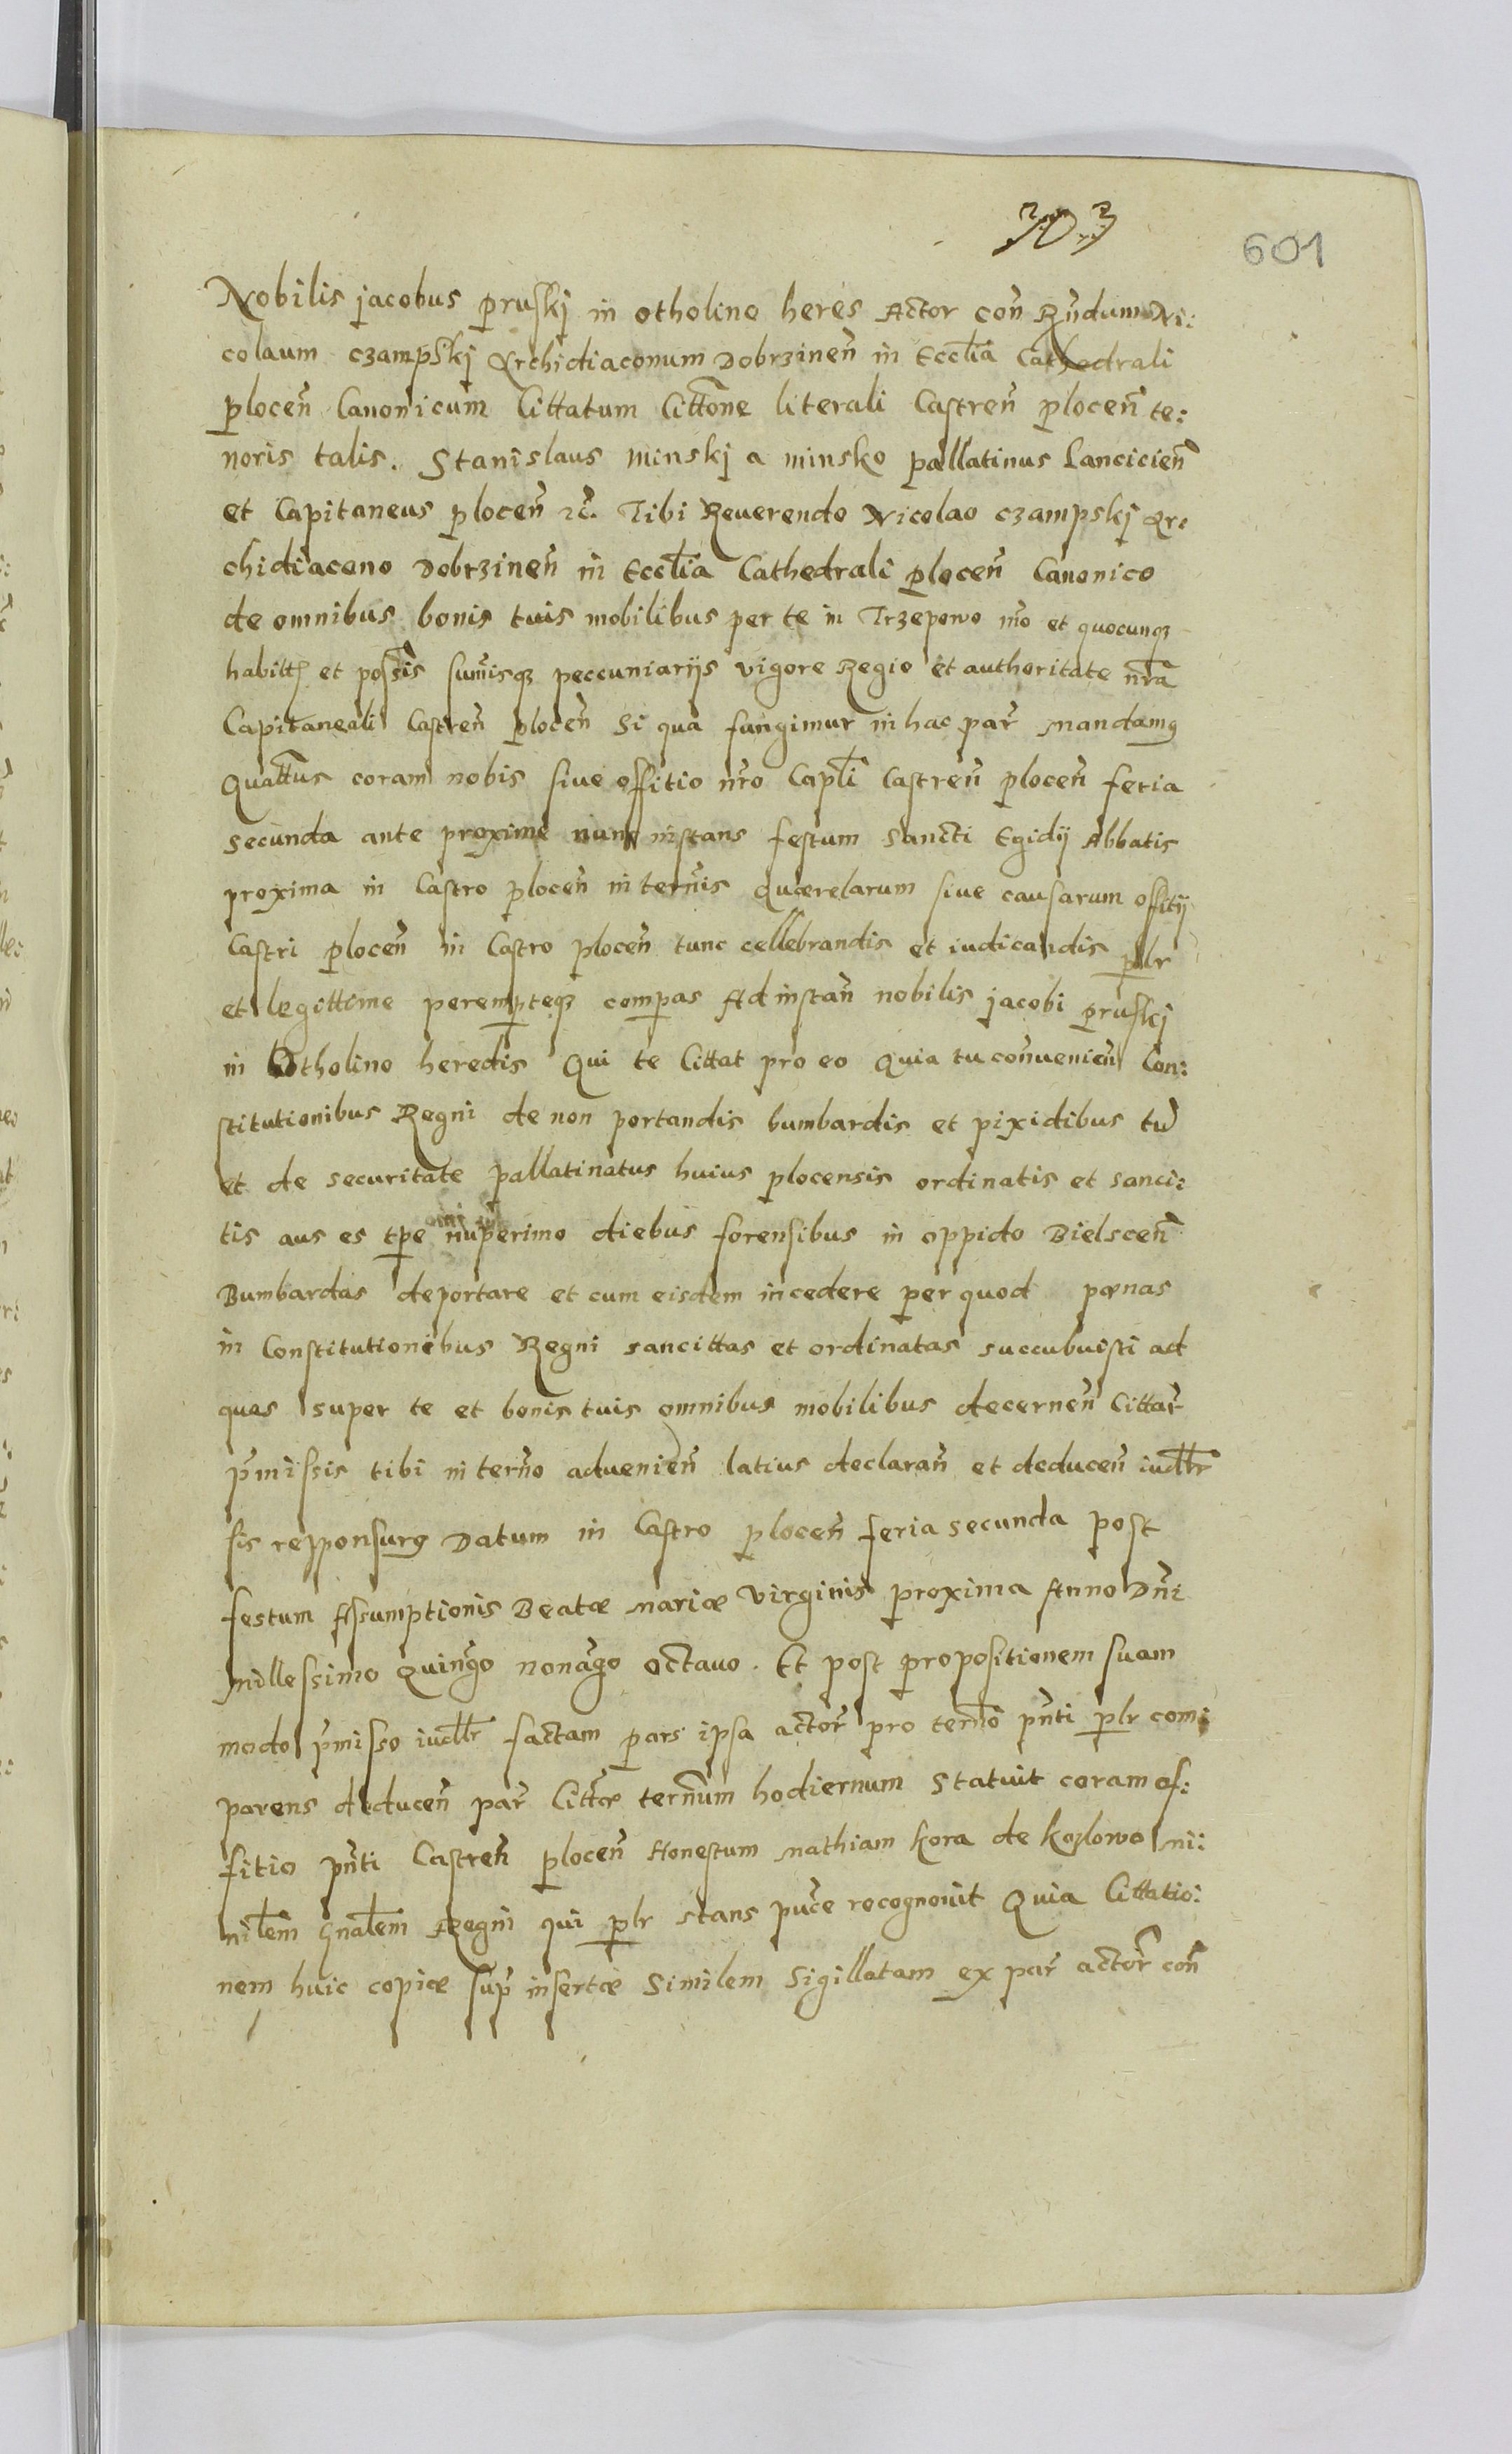 303
601
Nobilis jacobus pruskj in otholino heres Actor con̄ Rn̄dum Ni:
colaum czampskj Archidiaconum Dobrzinen̄ in Eccl̄ia Cathedrali
plocen̄ Canonicum Cittatum Citt̄one literali Castren̄ plocen̄ te:
noris talis. Stanislaus Minskj a minsko pallatinus Lancicien̄
et Capitaneus plocen̄ ꝛc̄. Tibi Reuerendo Nicolao czampskj Ar:
chidiacono Dobrzinen̄ in Eccl̄ia Cathedrali plocen̄ Canonico
de omnibus bonis tuis mobilibus per te in Trzepowo īm̄o et quocunqꝫ
habitt̄ et poss̄is sum̄isqꝫ peccuniarijs vigore Regio et authoritate nr̄a
Capitaneali Castren̄ plocen̄ Si qua fungimur in hac par̄ Mandamꝰ
Quatt̄us coram nobis siue offitio nr̄o Capl̄i Castren̄ plocen̄ feria
secunda ante proxime nunc instans festum Sancti Egidij Abbatis
proxima in Castro plocen̄ in ter̄nis Quaerelarum siue causarum offitij
Castri plocen̄ in Castro plocen̄ tunc cellebrandis et iudicandis plr
et legittime perempteqꝫ compas Ad instan̄ nobilis jacobi pruskj
in Otholino heredis Qui te Cittat pro eo Quia tu con̄uenien̄ Con:
stitutionibus Regni de non portandis bumbardis et pixidibus tū
et de securitate pallatinatus huius plocensis ordinatis et sanci:
tis aus es tp̄e nuperimo diebus forensibus in oppido Bielscen̄
Bumbardas deportare et cum eisdem incedere per quod pœnas
in Constitutionibus Regni sancittas et ordinatas succubuisti ad
quas super te et bonis tuis omnibus mobilibus decernen̄ Cittar̄
p̄missis tibi in ter̄no aduenien̄ latius declaran̄ et deducen̄ iudl̄r
sis responsurꝰ Datum in Castro plocen̄ feria secunda post
festum Assumptionis Beatæ Mariæ Virginis proxima Anno Dn̄i
Millessimo Quingō nonagō Octauo. Et post propositionem suam
modo p̄misso iudl̄r factam pars ipsa actor̄ pro ter̄no pn̄ti plr com:
parens deducen̄ par̄ Citt̄æ ter̄num hodiernum Statuit coram of:
fitio pn̄ti Castren̄ plocen̄ Honestum Mathiam kora de kozlowo Mi:
nil̄em Gnal̄em Regni qui plr stans puc̄e recognouit Quia Cittatio:
nem huic copiæ sup̄ insertæ Similem Sigillatam ex par̄ actor̄ con̄